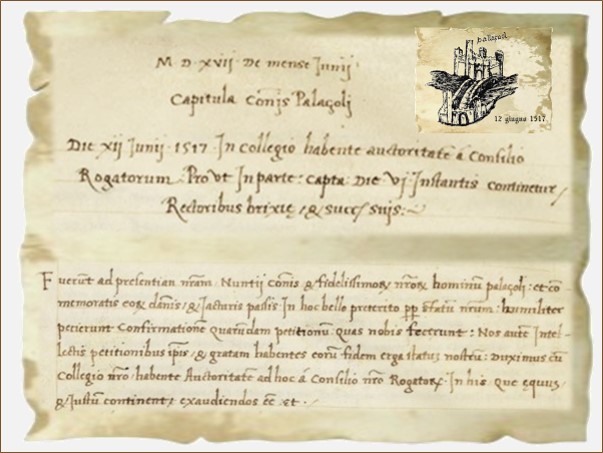 M D xvij De mense Junij
Capitula Cōnis Palaçolj
palaçol
12 giugno 1517
Die xij Junij 1517 In Collegio habente auctoritatē á Consilio
Rogatorum Pro Vt In parte: Capta Die Vj Instantis continetur/
Rectoribus brixię /& succ/ suis:
Fuerūt ad presentian nrām: Nuntij cōnis & fidelissimorꝝ nrōrꝝ hominū palaçoli: et cō-
memoratis eorꝝ dānis /& Jacturis passis In hoc bello preterito ꝓꝑ statū nrum: humiliter
petierunt Confirmationē quarūdam petitionū: quas nobis fecerunt: Nos autē Intel-
lectis petitionibus ip̄is /& gratam habentes eorū fidem erga status nostrū: Duximus cū
Collegio nrō habente Auctoritatē ad hoc á Consilio nrō Rogatorꝝ In his que equū/
& Justū continent/ exaudiendos eē et.